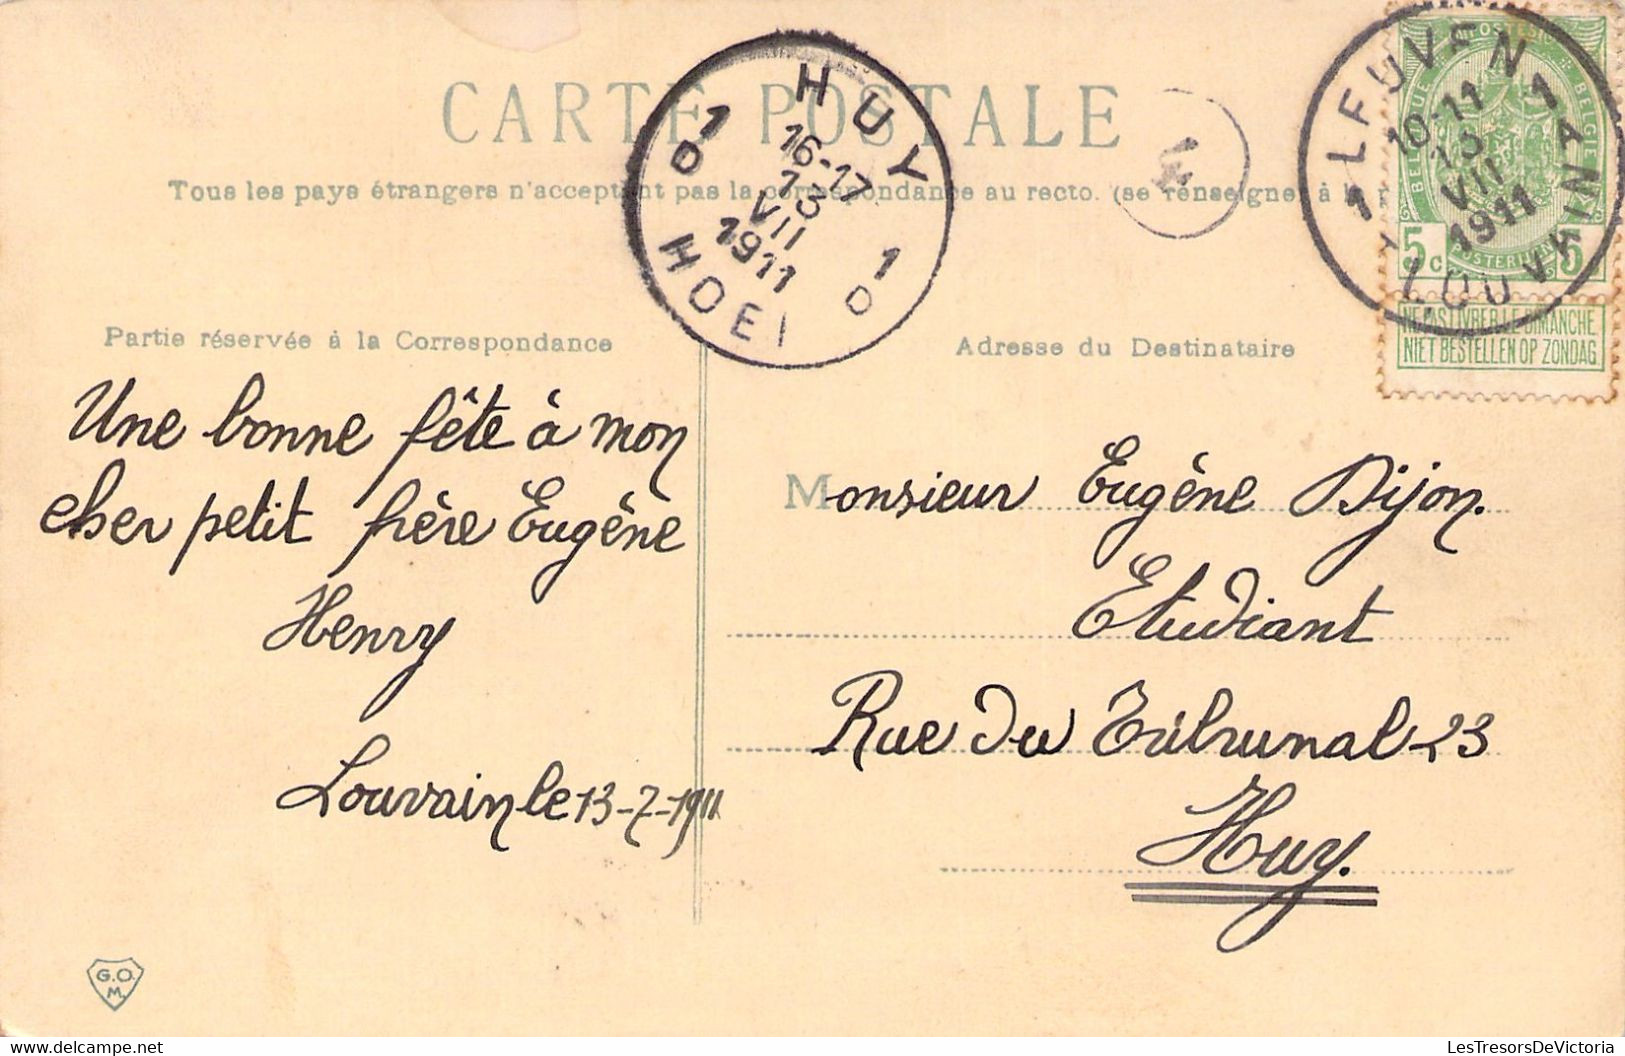 CARTE POSTALE
Tous les pays étrangers n'acceptent pas la correspondance au recto. (se renseigner à la
HUY
1 D
16-17
13
VII
1911
1 D
HOEI
4
LEUVEN
1
10-11
13
VII
1911
1
LOUVAIN
BELGIQUE
POSTES
BELGIE
POSTERIJEN
5c 5
NE PAS LIVRER LE DIMANCHE
NIET BESTELLEN OP ZONDAG
Partie réservée à la Correspondance
Une bonne fête à mon
cher petit frère Eugène
Henry
Louvain le 13-7-1911
Adresse du Destinataire
Monsieur Eugène Dijon.
Etudiant
Rue du Tribunal 23
Huy.
G.O.
M.
LesTresorsDeVictoria